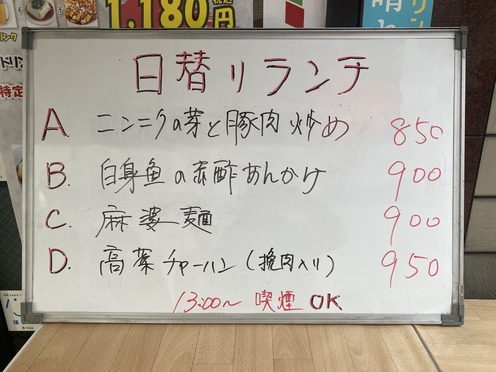 1,180円
日替りランチ
A ニンニクの芽と豚肉炒め 850
B. 白身魚の赤酢あんかけ 900
C. 麻婆麺 900
D. 高菜チャーハン(挽肉入り) 950
13:00~ 喫煙 OK